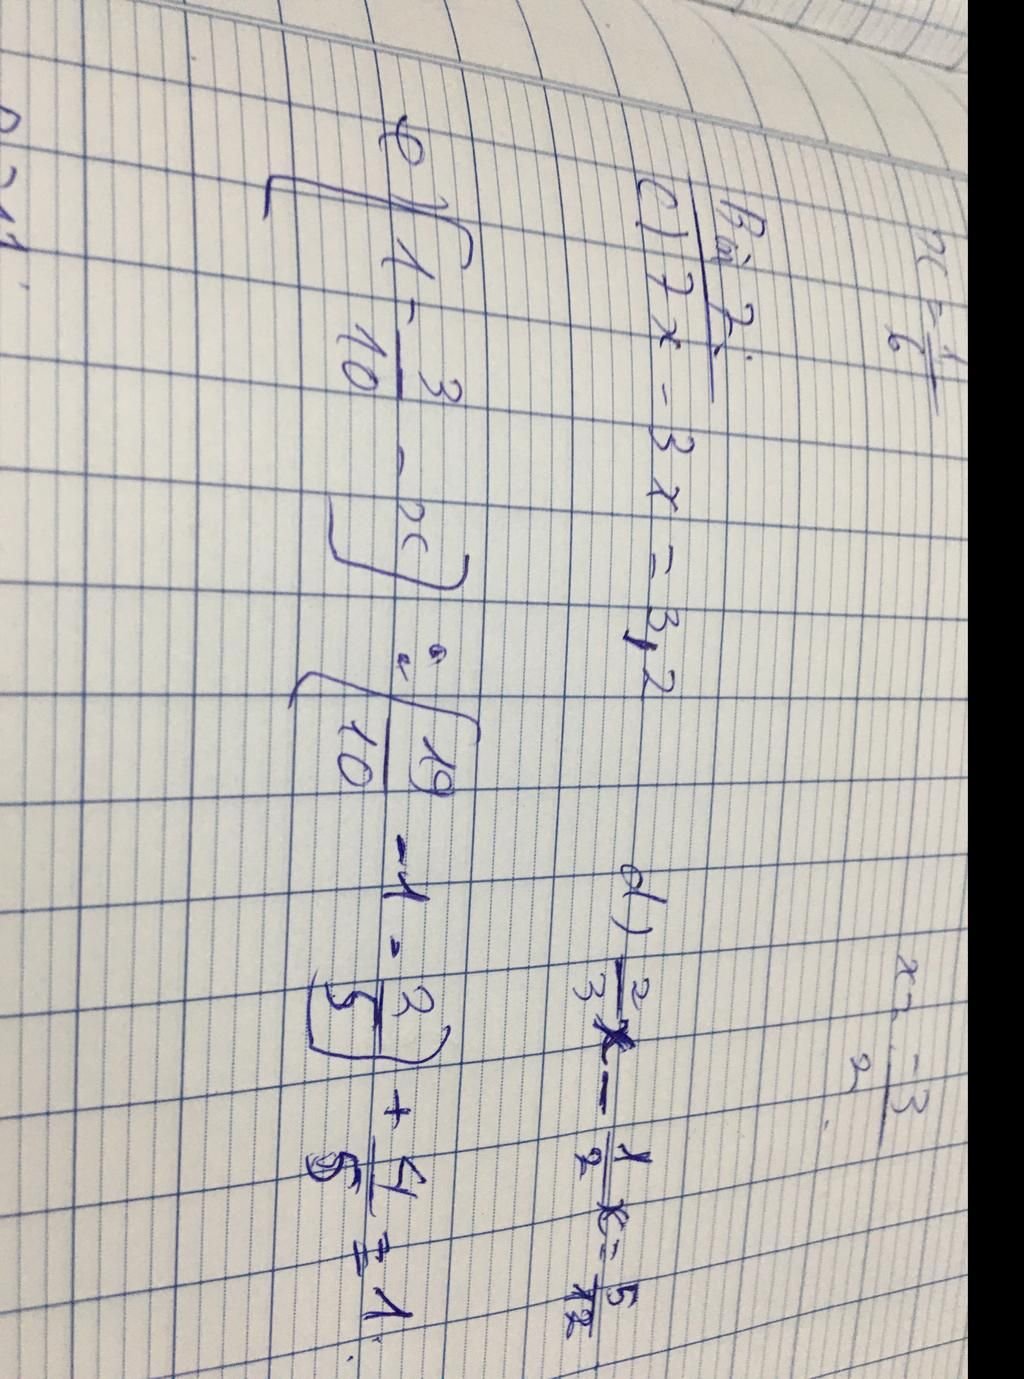 x = 1/6 x = -3/2
Bài 2:
c) 7x - 3x = 3,2 d) 2/3 x - 1/2 x = 5/12
e) (1 - 3/10 - x) : (19/10 - 1 - 2/5) + 4/5 = 1